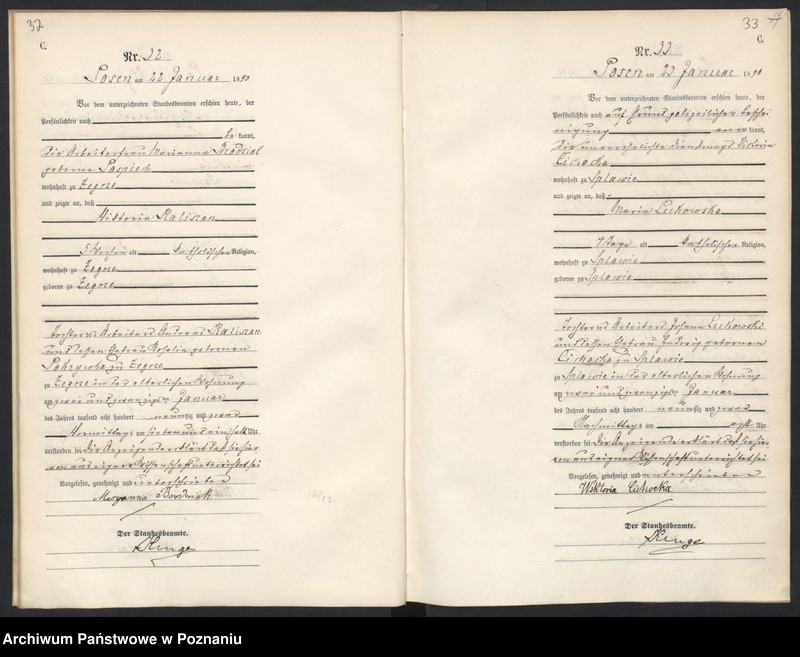 32
C.
Nr. 32
Posen am 22 Januar 1890
Vor dem unterzeichneten Standesbeamten erschien heute, der
Persönlichkeit nach
be kannt,
die Arbeiterfrau Marianna
geborne
wohnhaft zu Zegrze
und zeigte an, daß
Viktoria Kaliszan
5 Wochen alt katholischer Religion,
wohnhaft zu Zegrze
geboren zu Zegrze
Tochter des Arbeiters Andreas Kaliszan
und dessen Ehefrau Rosalia gebornen
zu Zegrze
zu Zegrze in der elterlichen Wohnung
am zwei und zwanzigsten Januar
des Jahres tausend acht hundert neunzig und zwar
Vormittags um sieben und einhalb Uhr
verstorben sei. Die Anzeigende erklärt daß sie hier
von aus eigener Wissenschaft unterrichtet sei
Vorgelesen, genehmigt und unterschrieben
Maryanna
Der Standesbeamte.
33
C.
Nr. 33
Posen am 23 Januar 1890
Vor dem unterzeichneten Standesbeamten erschien heute, der
Persönlichkeit nach auf Grund polizeilicher beschei
nigung aner kannt,
die unverehelichte Dienstmagd Viktoria
Cichocka
wohnhaft zu Splawie
und zeigte an, daß
Maria Lukowska
4 Tage alt katholischer Religion,
wohnhaft zu Splawie
geboren zu Splawie
Tochter des Arbeiters Johann Lukowski
und dessen Ehefrau Hedwig gebornen
Cichocka zu Splawie
zu Splawie in der elterlichen Wohnung
am zwei und zwanzigsten Januar
des Jahres tausend acht hundert neunzig und zwar
Nachmittags um acht Uhr
verstorben sei. Die Anzeigende erklärt daß sie hier
von aus eigener Wissenschaft unterrichtet sei
Vorgelesen, genehmigt und unterschrieben
Wiktoria Cichocka
Der Standesbeamte.
16/12
Archiwum Państwowe w Poznaniu